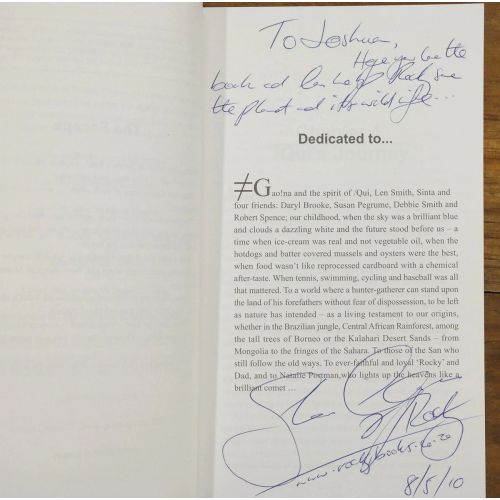 To Joshua,
Hope you love the
book and can help Rocky save
the planet and its wildlife...
Dedicated to...
≠Gao!na and the spirit of /Qui, Len Smith, Sinta and
four friends: Daryl Brooke, Susan Pegrume, Debbie Smith and
Robert Spence; our childhood, when the sky was a brilliant blue
and clouds a dazzling white and the future stood before us – a
time when ice-cream was real and not vegetable oil, when the
hotdogs and batter covered mussels and oysters were the best,
when food wasn't like reprocessed cardboard with a chemical
after-taste. When tennis, swimming, cycling and baseball was all
that mattered. To a world where a hunter-gatherer can stand upon
the land of his forefathers without fear of dispossession, to be left
as nature has intended – as a living testament to our origins,
whether in the Brazilian jungle, Central African Rainforest, among
the tall trees of Borneo or the Kalahari Desert Sands – from
Mongolia to the fringes of the Sahara. To those of the San who
still follow the old ways. To ever-faithful and loyal 'Rocky' and
Dad, and to Natalie Portman,who lights up the heavens like a
brilliant comet ...
Rocky
8/5/10